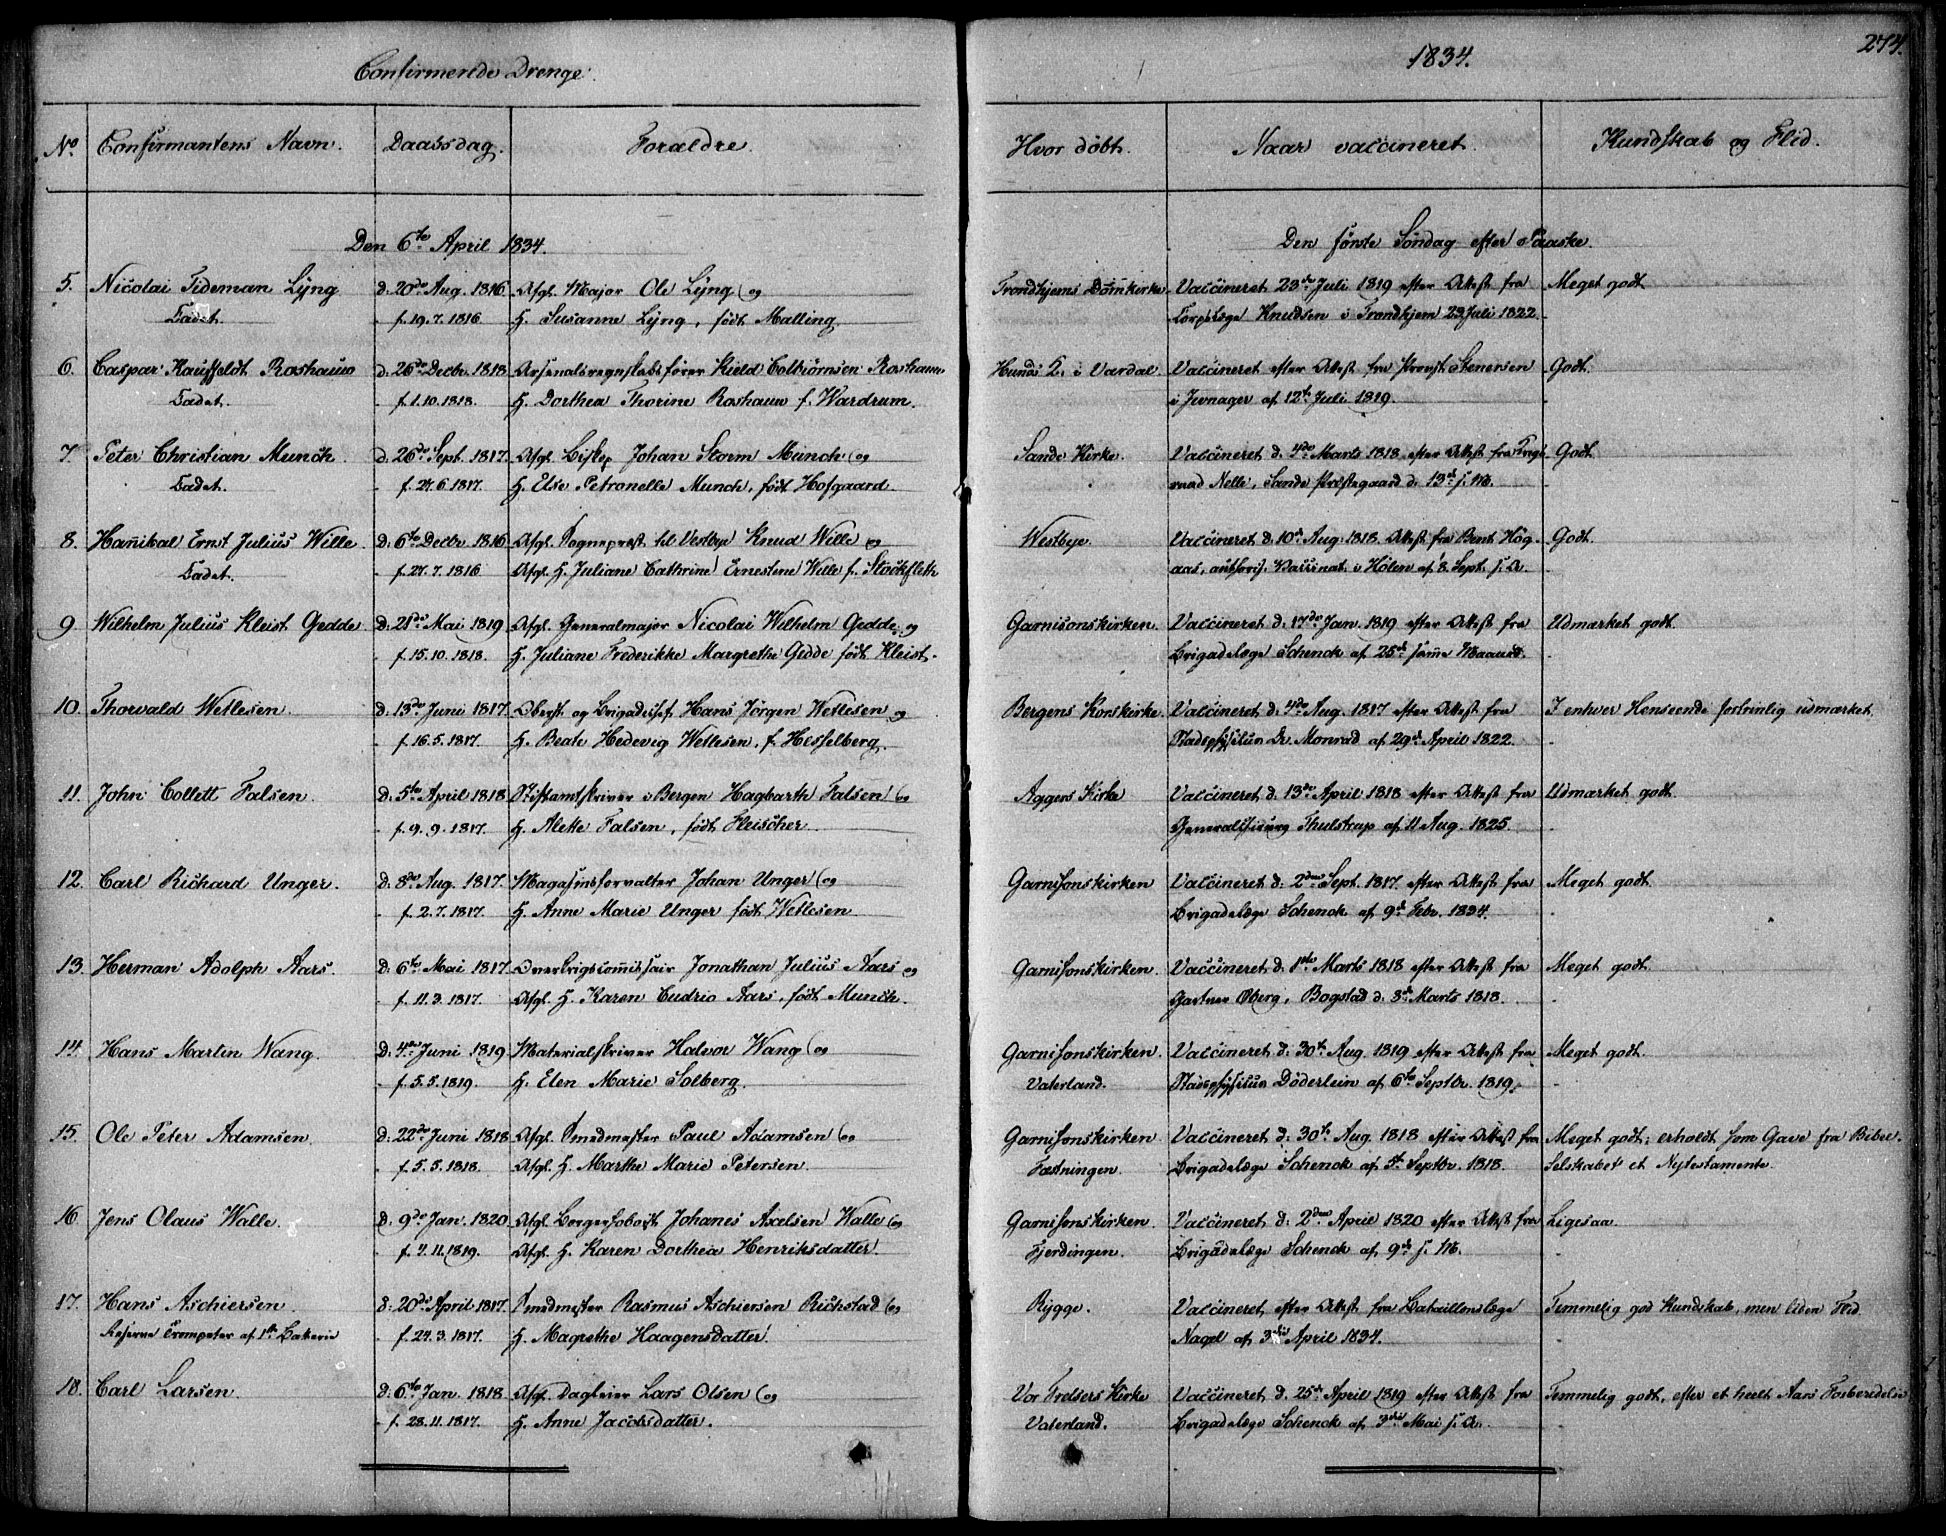 Confirmerede Drenge.
No Confirmantens Navn. Daabsdag. Forældre
Den 6te April 1834.
5. Nicolai Tideman Lyng d. 20de Aug. 1816. Afgl. Major Ole Lyng og
Cadet. f. 19.7.1816 H. Susanne Lyng, født Malling.
6. Caspar Kauffeldt Roshauw d. 26de Decbr. 1818 Arsenalregnskabsfører Kield Colbiørnsen Roshauw
Cadet. f. 1.10.1818. H. Dorthea Thorine Roshauw f. Wardrum.
7. Peter Christian Munch d. 26de Sept. 1817. Afgl. Biskop Johan Storm Munch og
Cadet. f. 27.6.1817. H. Else Petronelle Munch, født Hofgaard.
8. Hannibal Ernst Julius Wille d. 6te Decbr. 1816 Afgl. Sognepræst til Vestbye Knud Wille og
Cadet. f. 27.7.1816 Afgl. H. Juliane Cathrine Ernestine Wille f. Stockfleth
9. Wilhelm Julius Kleist Gedde d. 21de Mai 1819 Afgl. Generalmajor Nicolai Wilhelm Gedde og
f. 15.10.1818. H. Juliane Frederikke Margrethe Gedde født Kleist.
10. Thorvald Wetlesen. d. 13de Juni 1817 Oberst og Brigadechef Hans Jørgen Wetlesen og
f. 16.5.1817. H. Beate Hedevig Wetlesen, f. Hesselberg.
11. John Collett Falsen. d. 5te April 1818 Stiftamtskriver i Bergen Hagbarth Falsen og
f. 9.9.1817. H. Alette Falsen, født Fleischer.
12. Carl Richard Unger. d. 8de Aug. 1817. Magasinsforvalter Johan Unger og
f. 2.7.1817. H. Anne Marie Unger født Wetlesen
13. Herman Adolph Aars. d. 6te Mai 1817 Overkrigscommissair Jonathan Julius Aars og
f. 11.3.1817. Afgl. H. Karen Cudrio Aars, født Munch.
14. Hans Martin Wang. d. 4de Juni 1819 Materialskriver Halvor Wang og
f. 5.5.1819. H. Elen Marie Solberg.
15. Ole Peter Adamsen d. 22de Juni 1818 Afgl. Smedmester Paul Adamsen og
f. 5.5.1818. Afgl. H. Marthe Marie Petersen
16. Jens Olaus Walle. d. 9de Jan. 1820 Afgl. Borgerhoboist Johanes Axelsen Walle og
f. 4.11.1819. Afgl. H. Karen Dorthea Henriksdatter.
17. Hans Aschiersen. d. 20de April 1817. Smedmester Rasmus Aschiersen Richstad og
Reserve Trompeter af 1ste Batterie f. 24.3.1817. H. Magrethe Haagensdatter.
18. Carl Larsen. d. 6te Jan. 1818 Afgl. Dagleier Lars Olsen og
f. 28.11.1817. H. Anne Jacobsdatter.
1834. 274.
Hvor døbt. Naar vaccineret. Kundskab og Flid.
Den første Søndag efter Paaske.
Trondhjems Domkirke Vaccineret 23de Juli 1819 efter Attest fra Meget godt
Corpslæge Knudsen i Trondhjem 29 Juli 1822.
Hunds K. i Vardal Vaccineret efter Attest fra Provst Stenersen Godt.
i Jevnager af 12te Juli 1819.
Sande Kirke. Vaccineret d. 4de Marts 1818 efter Attest fra Krigs Godt.
raad Nelle, Sande Præstegaard d. 13de s. M.
Westbye. Vaccineret d. 10de Aug. 1818. Attest fra Bent Høg- Godt.
aas, authoris. Vaccinat. i Hølen af 8 Sept. s. A.
Garnisonskirken. Vaccineret d. 17de Jan. 1819 efter Attest fra Udmærket godt.
Brigadelæge Schenck af 25de samme Maaned.
Bergens Korskirke. Vaccineret d. 4de Aug. 1817 efter Attest fra I enhver Henseende fortrinlig udmærket.
Stadsphysikus Dr. Monrad af 29de April 1822.
Aggers Kirke Vaccineret d. 13de April 1818 efter Attest fra Udmærket godt.
Generalchirurg Thulstrup af 11 Aug. 1825.
Garnisonskirken Vaccineret d. 2den Sept. 1817. efter Attest fra Meget godt.
Brigadelæge Schenck af 9de Febr. 1834.
Garnisonskirken. Vaccineret d. 1ste Marts 1818 efter Attest fra Meget godt.
Gartner Oberg, Bogstad d. 8de Marts 1818.
Garnisonskirken. Vaccineret d. 30te Aug. 1819 efter Attest fra Meget godt.
Vaterland. Stadsphysikus Døderlein af 6te Septbr. 1819.
Garnisonskirken Vaccineret d. 30te Aug. 1818 efter Attest fra Meget godt; erholdt som Gave fra Bibel-
Fæstningen. Brigadelæge Schenck af 5te Septbr. 1818. Selskabet et Nytestamente.
Garnisonskirken. Vaccineret d. 2den April 1820 efter Attest fra Ligesaa.
Fjerdingen. Brigadelæge Schenck af 9de s. M.
Rygge. Vaccineret efter Attest fra Bataillonslæge Temmelig god Kundskab, men liden Flid
Nagel af 3die April 1834.
Vor Frelsers Kirke Vaccineret d. 25de April 1819 efter Attest fra Temmelig godt, efter et heelt Aars Forberedelse
Vaterland. Brigadelæge Schenck af 3die Mai s. A.